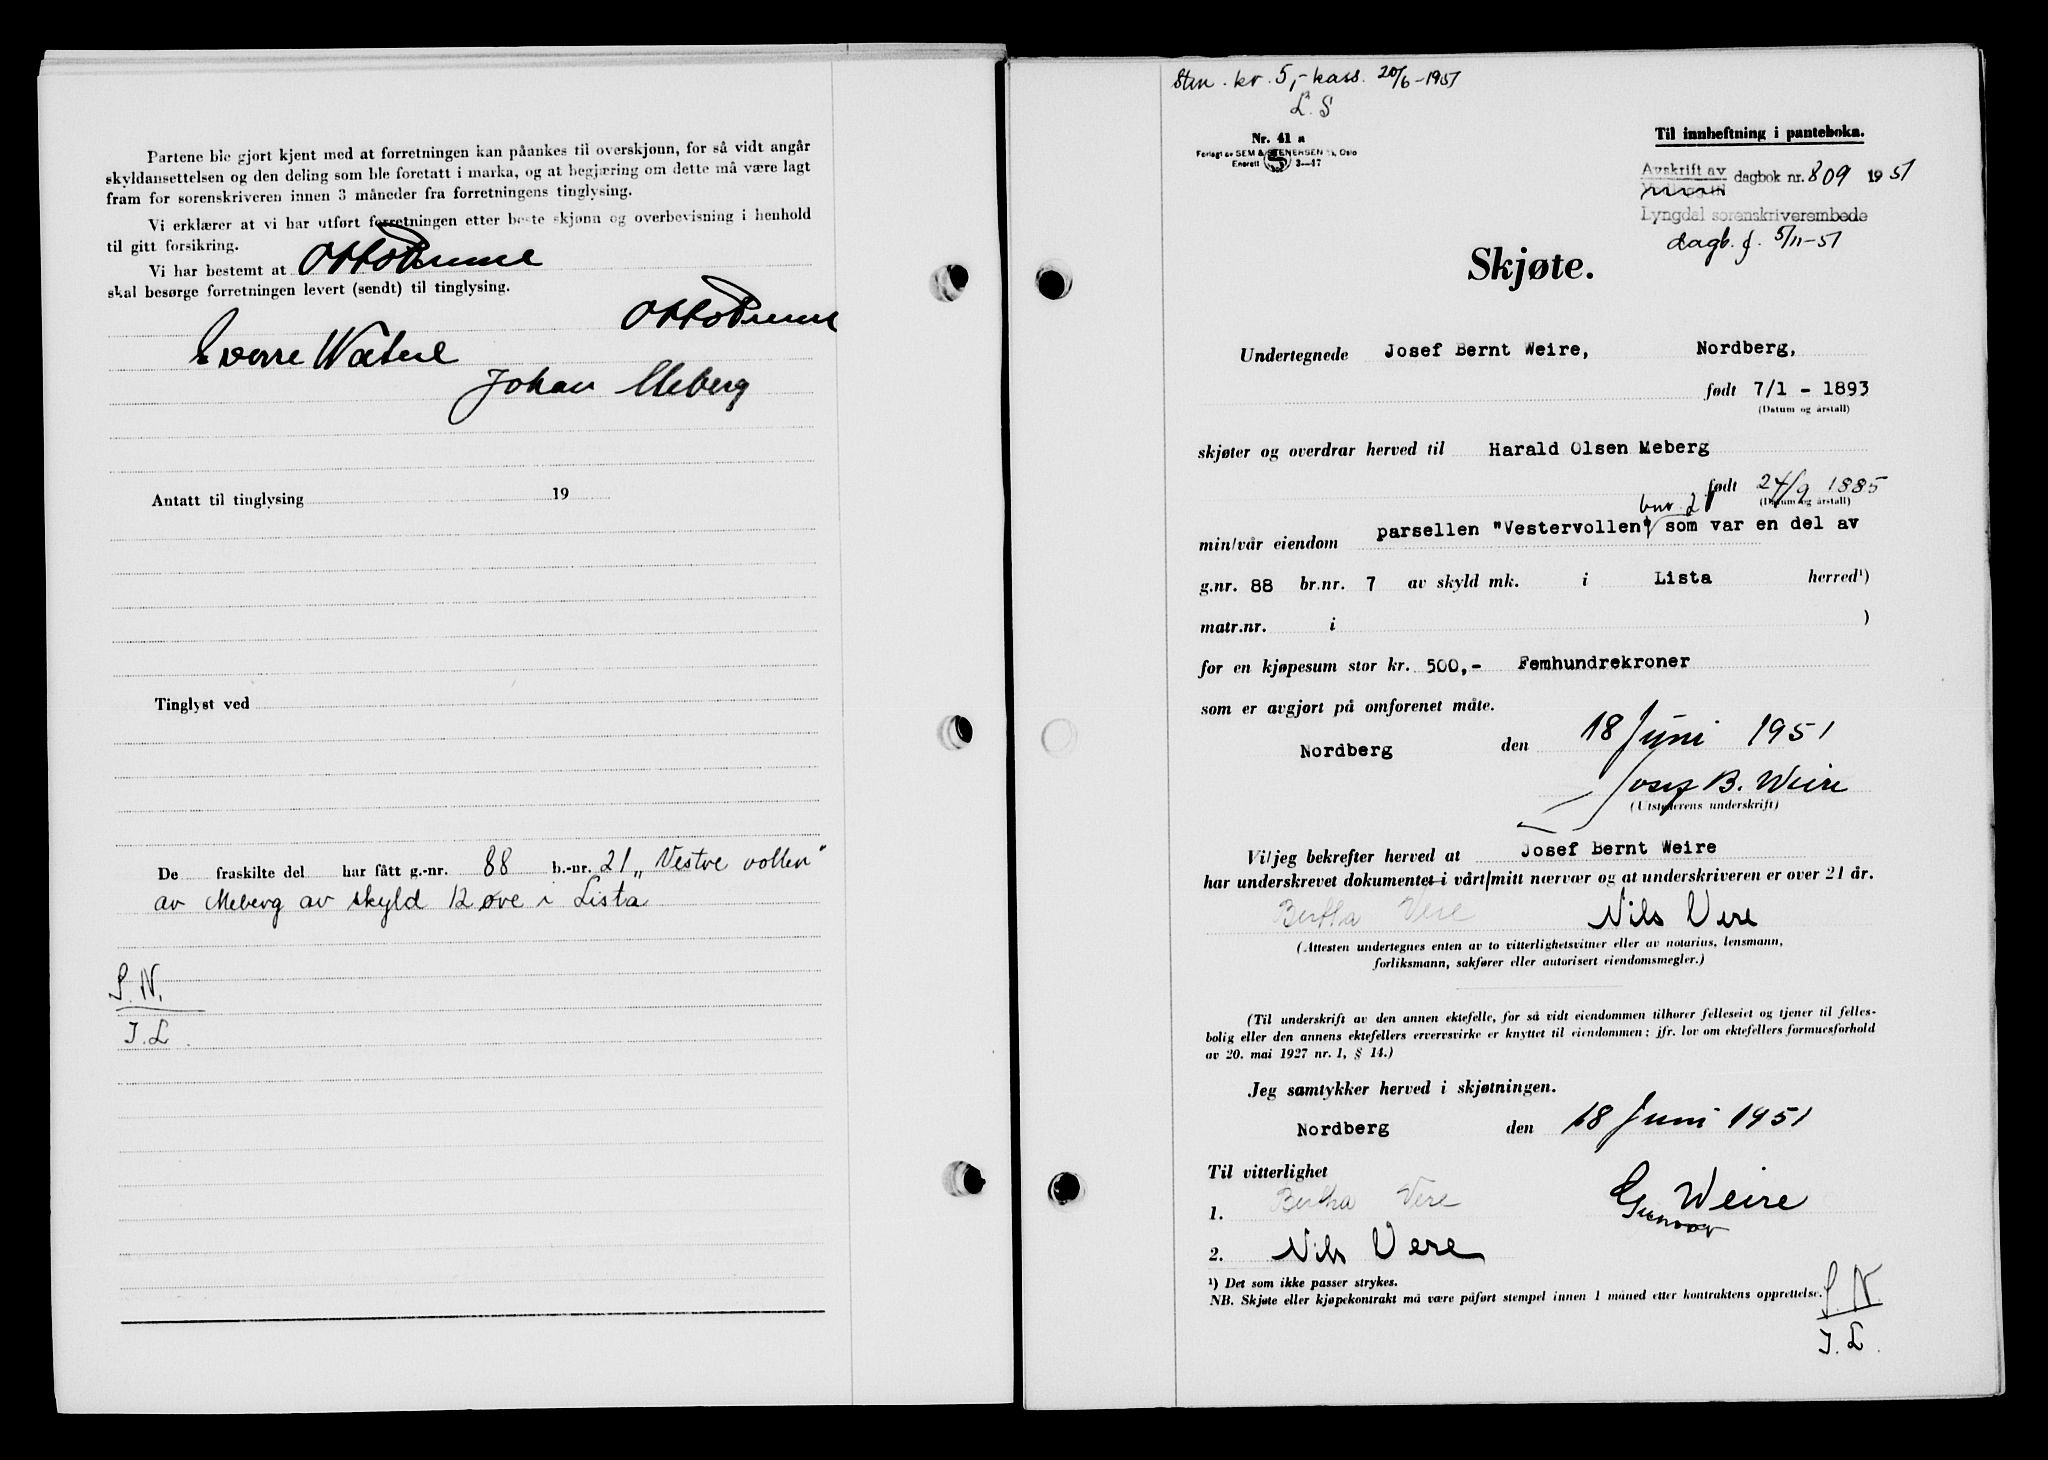 Partene ble gjort kjent med at forretningen kan påankes til overskjønn, for så vidt angår
skyldansettelsen og den deling som ble foretatt i marka, og at begjæring om dette må være lagt
fram for sorenskriveren innen 3 måneder fra forretningens tinglysing.
Vi erklærer at vi har utført forretningen etter beste skjønn og overbevisning i henhold
til gitt forsikring.
Vi har bestemt at Otto
skal besørge forretningen levert (sendt) til tinglysing.
Otto
Sverre
Johan Meberg
Antatt til tinglysing 19
Tinglyst ved
De fraskilte del har fått g.-nr. 88 b.-nr. 21 „Vestre vollen"
av Meberg av skyld 12 øre i Lista
S. N.
I. L.
Stm. kr. 5,- kass. 20/6-1951
L. S
Nr. 41 a
Forlagt av SEM & STENERSEN, Oslo
Enerett 3—47
Til innheftning i panteboka.
Avskrift av
dagbok nr. 809 1951
Lyngdal sorenskriverembede
dagb. f. 5/11-51
Skjøte.
Undertegnede Josef Bernt Weire, Nordberg,
født 7/1 - 1893
(Datum og årstall)
skjøter og overdrar herved til Harald Olsen Meberg
født 24/9 1885
(Datum og årstall)
bnr. 21
min/vår eiendom parsellen "Vestervollen" som var en del av
g.nr. 88 br.nr. 7 av skyld mk. i Lista herred¹)
matr.nr. i )
for en kjøpesum stor kr. 500,- Femhundrekroner
som er avgjort på omforenet måte.
Nordberg den 18 Juni 1951
Josef B. Weire
(Utstederens underskrift)
Vi/jeg bekrefter herved at Josef Bernt Weire
har underskrevet dokumentet i vårt/mitt nærvær og at underskriveren er over 21 år.
Bertha Vere Nils Vere
(Attesten undertegnes enten av to vitterlighetsvitner eller av notarius, lensmann,
forliksmann, sakfører eller autorisert eiendomsmegler.)
(Til underskrift av den annen ektefelle, for så vidt eiendommen tilhører felleseiet og tjener til felles-
bolig eller den annens ektefellers ervervsvirke er knyttet til eiendommen; jfr. lov om ektefellers formuesforhold
av 20. mai 1927 nr. 1, § 14.)
Jeg samtykker herved i skjøtningen.
Nordberg den 18 Juni 1951
Til vitterlighet
1. Bertha Vere G. Weire
2. Nils Vere
¹) Det som ikke passer strykes.
NB. Skjøte eller kjøpekontrakt må være påført stempel innen 1 måned etter kontraktens opprettelse.
S. N.
I. L.